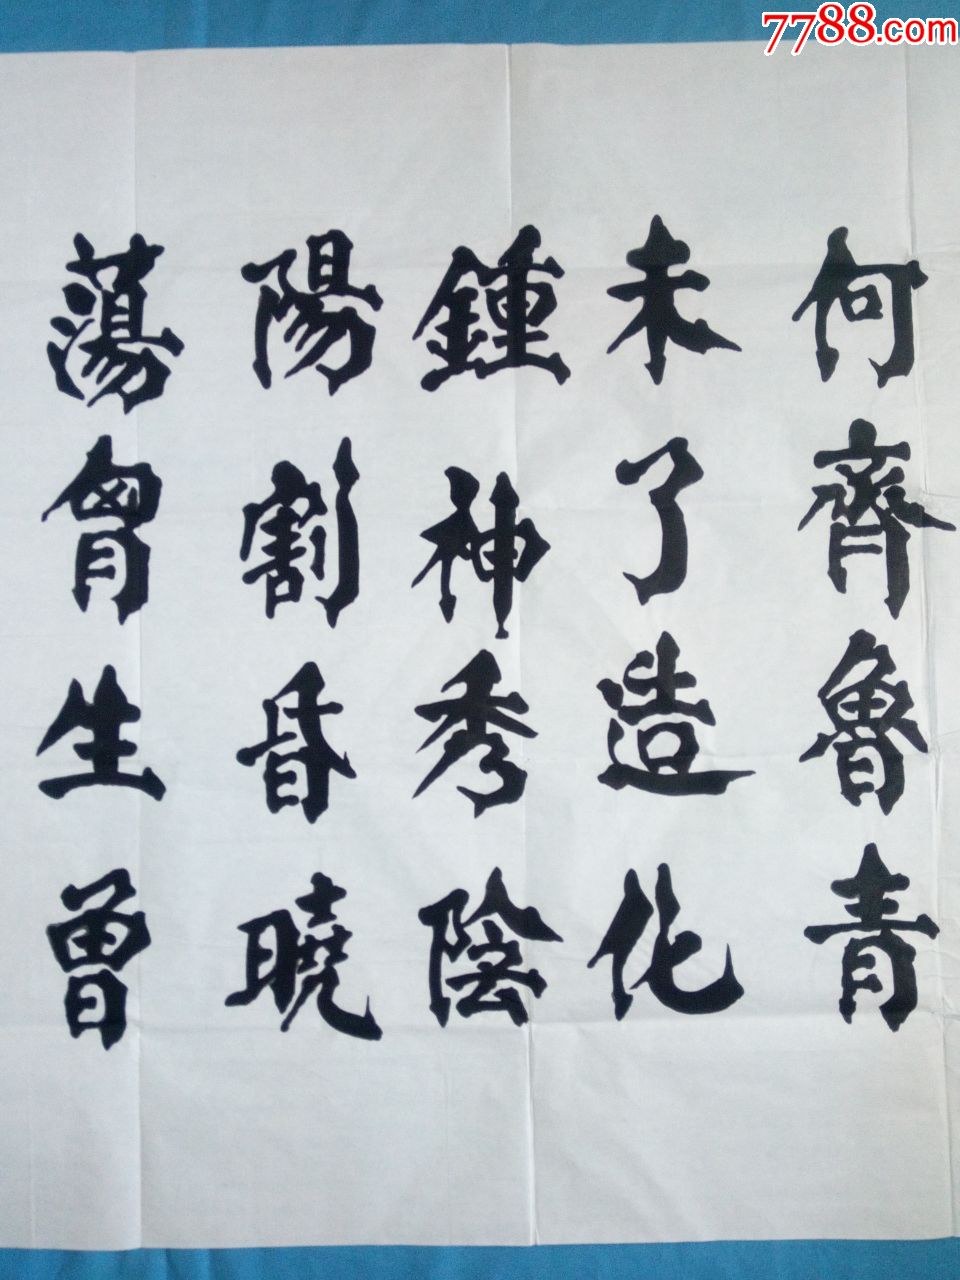 7788.com
何齊魯青
未了造化
鍾神秀陰
陽割昏曉
蕩胷生曾